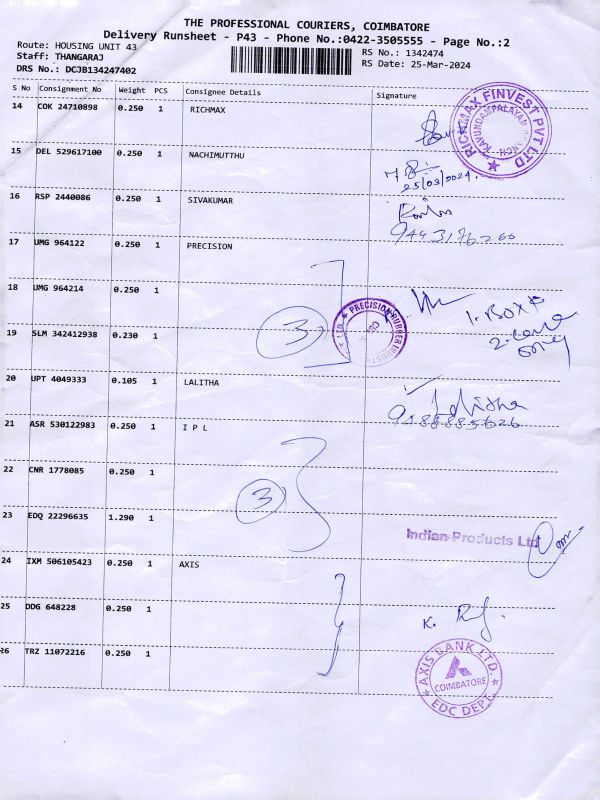 THE PROFESSIONAL COURIERS, COIMBATORE
Delivery Runsheet - P43 - Phone No.:0422-3505555 - Page No.:2
Route: HOUSING UNIT 43
Staff: THANGARAJ
DRS No.: DCJB134247402
RS No.: 1342474
RS Date: 25-Mar-2024
S No Consignment No Weight PCS Consignee Details Signature
14 COK 24710898 0.250 1 RICHMAX
RICHMAX FINVEST PVT LTD
KAVUNDAMPALAYAM BRANCH
15 DEL 529617100 0.250 1 NACHIMUTTHU
25/03/2024.
16 RSP 2440086 0.250 1 SIVAKUMAR
9443176260
17 UMG 964122 0.250 1 PRECISION
18 UMG 964214 0.250 1
1. BOX
2. Cover
3
PRECISION RUBBER INDUSTRI
LTD
19 SLM 342412938 0.230 1
20 UPT 4049333 0.105 1 LALITHA
Lalitha
21 ASR 530122983 0.250 1 I P L
22 CNR 1778085 0.250 1
3
23 EDQ 22296635 1.290 1
Indian Products Ltd
24 IXM 506105423 0.250 1 AXIS
25 DDG 648228 0.250 1
K.
26 TRZ 11072216 0.250 1
AXIS BANK LTD.
COIMBATORE
EDC DEPT.